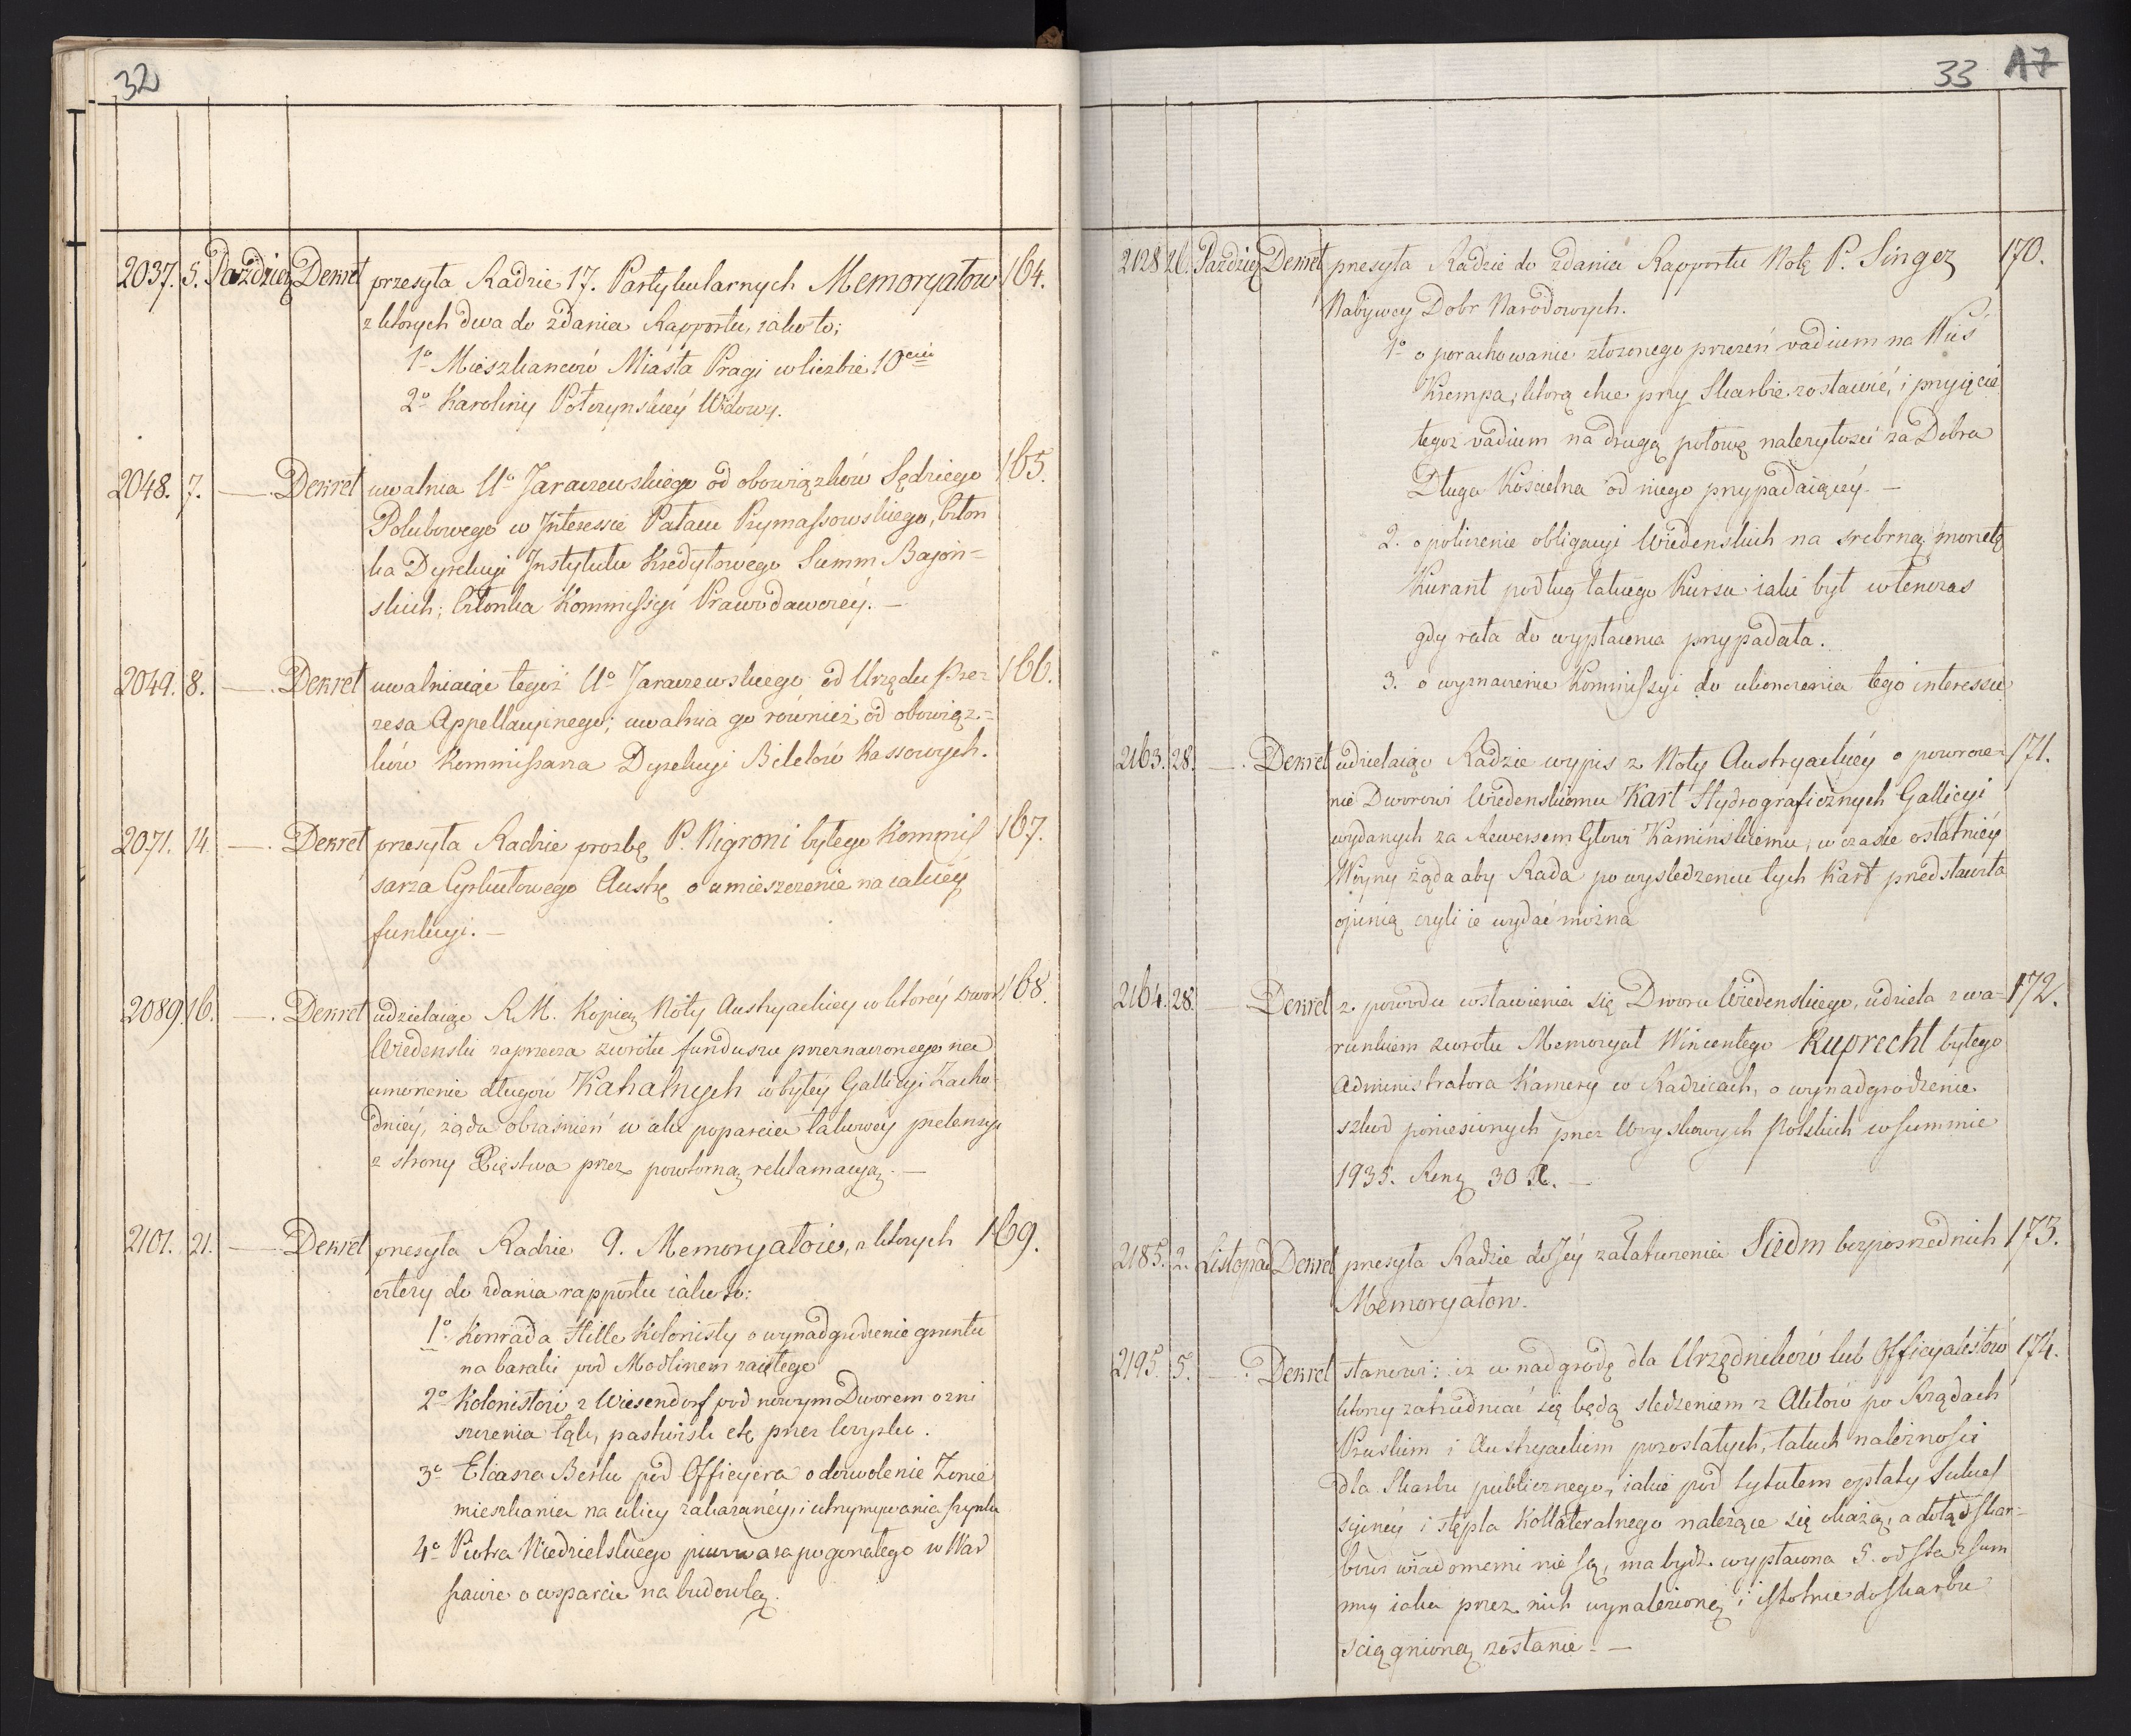 32
2037. 5. Paździer Dekret przesyła Radzie 17. Partykularnych Memoryałow 164.
z ktorych dwa do zdania Rapportu, iako to;
1o Mieszkancow Miásta Pragi w liczbie 10ciu
2o Karoliny Potczynskiey Wdowy.
2048. 7. — . Dekret uwalnia Uo Jaraczewskiego od obowiązków Sędziego 165.
Polubowego w Interessie Pałacu Prymassowskiego, Człon
ka Dyrekcyi Instytutu Kredytowego Summ Bajoń=
skich; Członka Kommissyi Prawodawczey. —
2049. 8. — . Dekret uwalniaiąc tegoż Uo Jaraczewskiego od Urzędu Pre= 166.
zesa Appellacyinego; uwalnia go również od obowiąz=
ków Kommissarza Dyrekcyi Biletów Kassowych.
2071. 14. — . Dekret przesyła Radzie prozbę P. Nigroni byłego Kommis 167.
sarza Cyrkułowego Austr: o umieszczenie na iakiey
funkcyi. —
2089. 16. — . Dekret udzielaiąc R.M. Kopią Noty Austryackiey w ktorey Dwor 168.
Wiedenski zaprzecza zwrotu funduszu przeznaczonego na
umorzenie długow Kahalnych w byłey Gallicyi Zacho=
dniey, żąda obiaśnień w celu poparcia takowey pretensyi
z strony Xięstwa przez powtorną reklamacyą. —
2101. 21. — Dekret przesyła Radzie 9. Memoryałow, z ktorych 169.
cztery do zdania rapportu iako to:
1o Konrada Hille Kolonisty o wynadgrodzenie gruntu
na baraki pod Modlinem zaiętego
2o Kolonistow z Wiesendorf pod nowym Dworem o zni
szczenia łąk, pastwisk etc przez Woysko.
3o Eliasza Berku pod Officyera o dozwolenie Zonie
mieszkania na ulicy zakazaney, i utrzymywania szynku
4o Piotra Niedzielskiego piwowara pogorzałego w War
szawie o wsparcie na budowlą.
33 A7
2128 26. Paździer Dekret przesyła Radzie do zdania Rapportu Notę P. Singer 170.
Nabywcy Dobr Narodowych.
1o o porachowanie złozonego przezeń vadium na Wieś
Krempa, ktorą chce przy Skarbie zostawić, i przyięcie
tegoż vadium na drugą połowę nalezytosci za Dobra
Długa Kościelna od niego przypadaiącey. —
2. o policzenie obligacyi Wiedenskich na srebrną monetę
Kurant podług takiego Kursu iaki był wtenczas
gdy rata do wypłacenia przypadała.
3. o wyznaczenie Kommissyi do ukonczenia tego interessu
2163. 28. — . Dekret udzielaiąc Radzie wypis z Noty Austryackiey o powroce= 171.
nie Dworowi Wiedenskiemu Kart Hydrograficznych Gallicyi
wydanych za Rewersem Głowi Kaminskiemu, w czasie ostatniey
Woyny żąda aby Rada po wysledzeniu tych Kart przedstawiła
opinią czyli ie wydać można
2164. 28. — Dekret z powodu wstawienia się Dworu Wiedenskiego, udziela z wa= 172.
runkiem zwrotu Memoryał Wincentego Ruprecht byłego
Administratora Kamery w Radzicach, o wynadgrodzenie
szkod poniesionych przez Woyskowych Polskich w summie
1935. Reng 30 X. —
2185. 2. Listopad Dekret przesyła Radzie do Jey załatwienia Siedm bezposrzednich 173.
Memoryałow.
2195. 5. — . Dekret stanowi: iz w nadgrodę dla Urzędników lub Officyalistów 174.
ktorzy zatrudniać się będą sledzeniem z Aktów po Rządach
Pruskim i Austryackim pozostałych, takich należnosci
dla Skarbu publicznego, iakie pod tytułem opłaty Sukces
syiney i stępla Kollateralnego należące się okażą, a dotąd Skar=
bowi wiadomemi nie są, ma bydź wypłacona 5. od sta z sum
my iaka przez nich wynalezioną i istotnie do Skarbu
sciągnioną zostanie. —